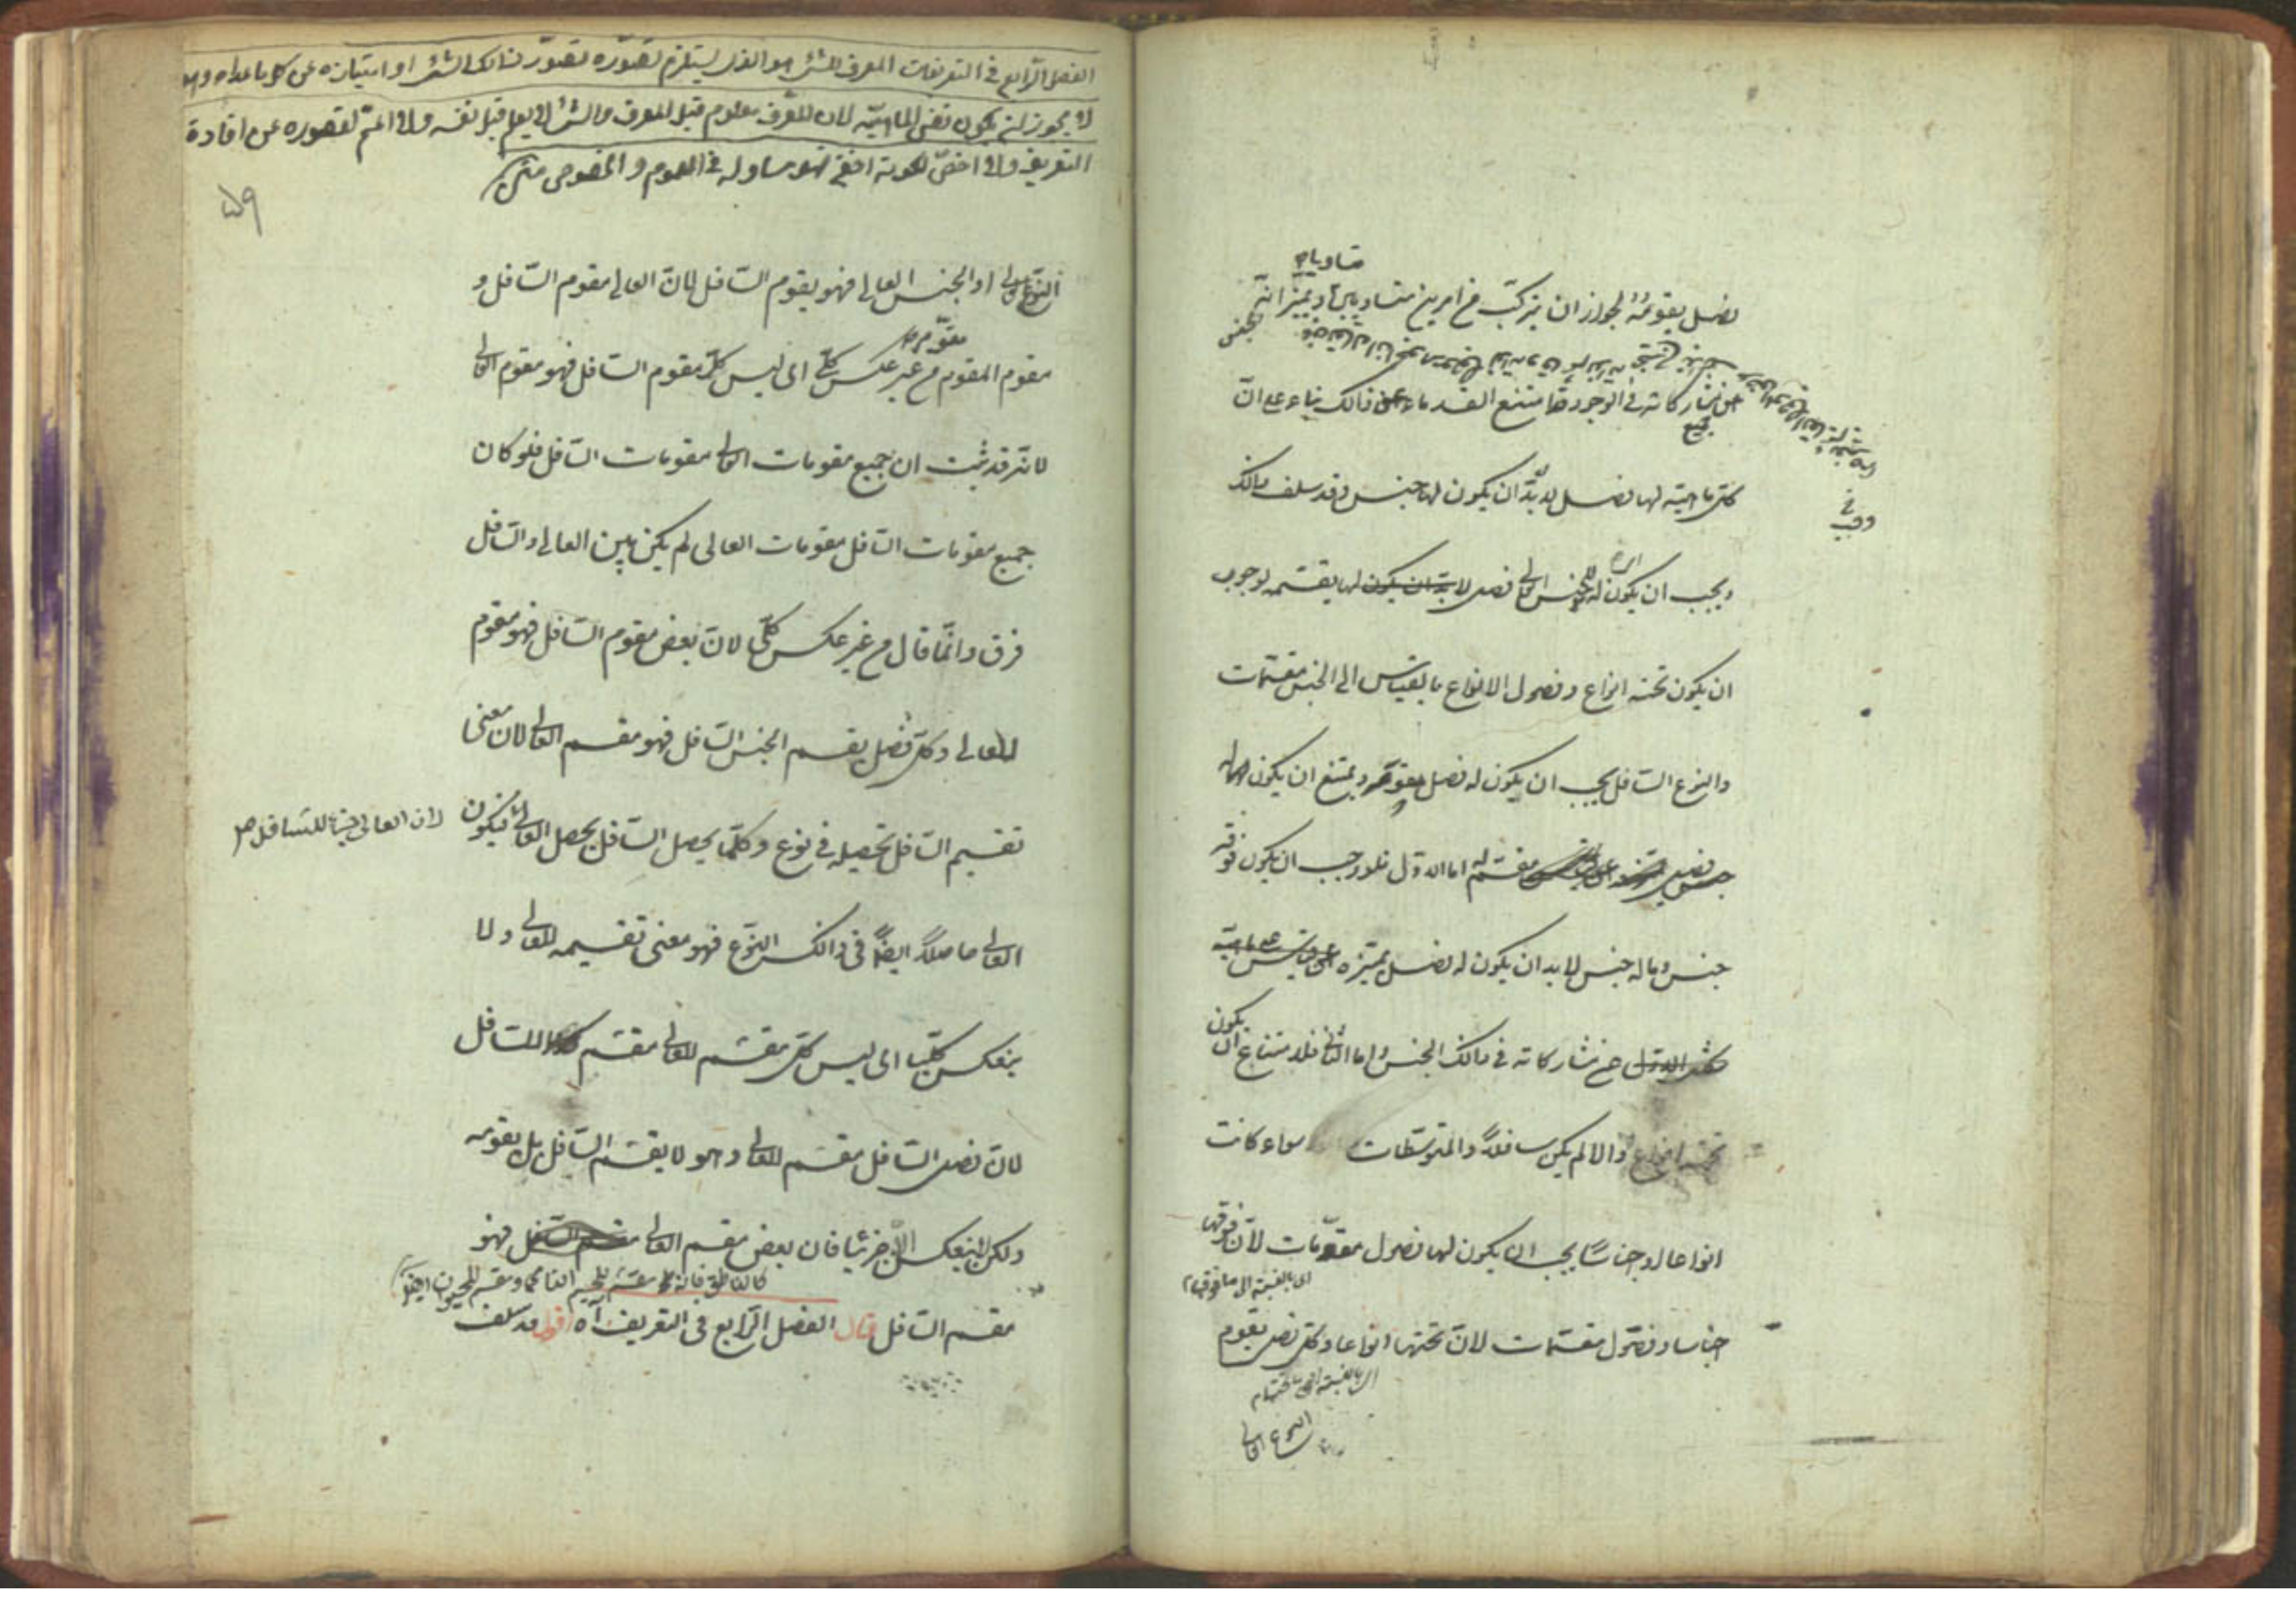 متساويان
فصل يقومه لجواز ان يتركب من امرين متساويين او يميزانه
عن مشاركاته في الوجود وقد امتنع القدماء عن ذالك بناء على ان
كل ماهية لها فصل لا بد ان يكون لها جنس وقد سلف ذالك
ويجب ان يكون له اى للجنس العالى فصل لا بد ان يكون لها يقسمه لوجوب
ان يكون تحته انواع وفصول الانواع بالقياس الى الجنس مقسمات
والنوع السافل يجب ان يكون له فصل مقوم ويمتنع ان يكون لها
فصل مقسم له اما الاول فلوجوب ان يكون فوقه
جنس وما له جنس لا بد ان يكون له فصل يميزه
عن مشاركاته في ذالك الجنس واما الثانى فلامتناع ان يكون
تحته انواع والا لم يكن سافلاً والمتوسطات سواء كانت
انواعا او اجناسًا يجب ان يكون لها فصول مقوّمات لانّ فوقها
اى بالنسبة الى ما فوقها
اجناسا وفصول مقسّمات لانّ تحتها انواعا وكل فصل يقوم
اى بالنسبة الى ما تحتها
النوع العالى
الفصل الرّابع في التعريفات المعرف للشئ هو الذى يستلزم تصوّره تصوّر ذالك الشئ او امتيازه عن كل ما عداه وهو
لا يجوز ان يكون نفس الماهيّة لان المعرّف معلوم قبل المعرف والشئ لا يعلم قبل نفسه ولا اعمّ لقصوره عن افادة
التعريف ولا اخصّ لكونه اخفى فهو مساو له في العموم والخصوص متن
۵۹
النوع العالى او الجنس العالى فهو يقوم السّافل لانّ العالى مقوم السّافل و
مقوّم
مقوم المقوم من غير عكس كلّى اى ليس كلّ مقوم السافل فهو مقوم العالى
لانّه قد ثبت ان جميع مقومات العالى مقومات السّافل فلو كان
جميع مقومات السّافل مقومات العالى لم يكن بين العالى والسّافل
فرق وانّما قال من غير عكس كلّى لانّ بعض مقوم السّافل فهو مقوم
للعالى وكل فصل يقسم الجنس السّافل فهو مقسم العالى لان معنى
تقسيم السّافل تحصيله في نوع وكلّما يحصل السّافل يحصل العالى فيكون
لان العالى جزء للسّافل صح
العالى حاصلاً ايضاً في ذالك النّوع فهو معنى تقسيمه للعالى ولا
ينعكس كليّا اى ليس كل مقسم للعالى مقسم للسّافل
لانّ فصل السّافل مقسم للعالى وهو لا يقسم السّافل بل يقومه
ولكن ينعكس الآ جزئيا فان بعض مقسم العالى مقسم السّافل فهو
كالناطق فانه مقسم للجسم النامى ومقسم للحيوان ايضاً
مقسم السّافل قال الفصل الرّابع في التعريف آه اقول قد سلف